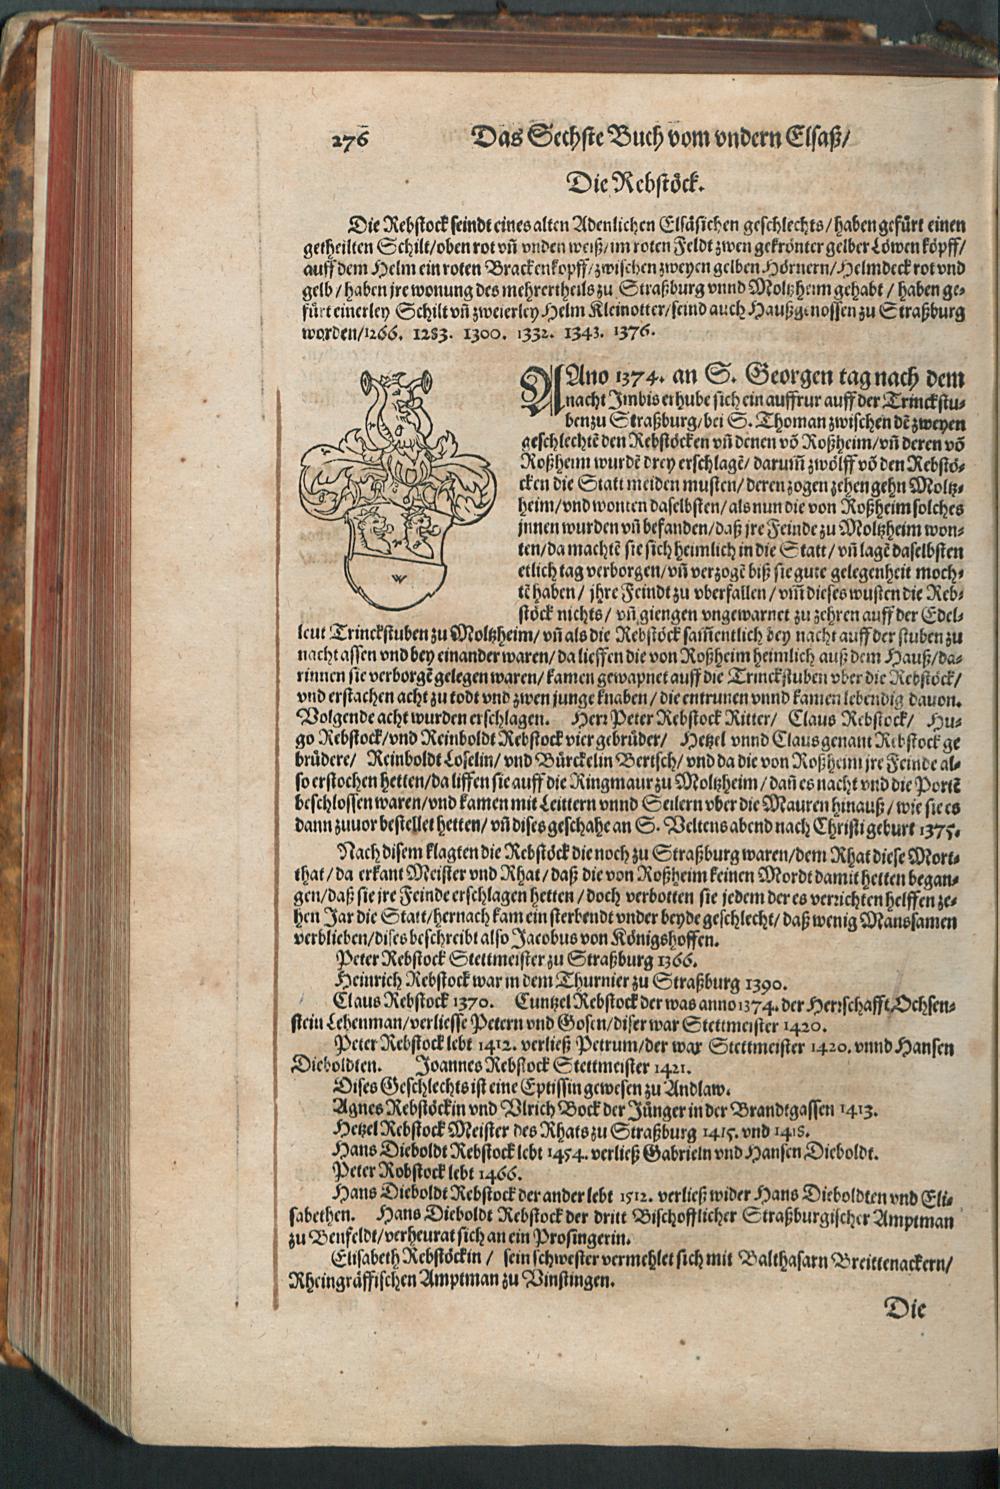 276 Das Sechste Buch vom vndern Elsaß/
Die Rebstöck.
Die Rebstock seindt eines alten Adenlichen Elsäsichen geschlechts/haben gefürt einen
getheilten Schilt/oben rot vñ vnden weiß/im roten Feldt zwen gekrönter gelber Löwen köpff/
auff dem Helm ein roten Brackenkopff/zwischen zweyen gelben Hörnern/Helmdeck rot vnd
gelb/haben jre wonung des mehrertheils zu Straßburg vnnd Moltzheim gehabt/haben ge-
fürt einerley Schilt vñ zweierley Helm Kleinotter/seind auch Haußgenossen zu Straßburg
worden/1266. 1283. 1300. 1332. 1343. 1376.
ANno 1374. an S. Georgen tag nach dem
nacht Jmbis erhube sich ein auffrur auff der Trinckstu-
ben zu Straßburg/bei S. Thoman zwischen dẽ zweyen
geschlechtẽ den Rebstöcken vñ denen võ Roßheim/vñ deren võ
Roßheim wurdẽ drey erschlagẽ/darum̃ zwölff võ den Rebstö-
cken die Statt meiden musten/deren zogen zehen gehn Moltz-
heim/vnd wonten daselbsten/als nun die von Roßheim solches
jnnen wurden vñ befanden/daß jre Feinde zu Moltzheim won-
ten/da machtẽ sie sich heimlich in die Statt/vñ lagẽ daselbsten
etlich tag verborgen/vñ verzogẽ biß sie gute gelegenheit moch-
tẽ haben/jhre Feindt zu vberfallen/vm̃ dieses wusten die Reb-
stöck nichts/vñ giengen vngewarnet zu zehren auff der Edel-
leut Trinckstuben zu Moltzheim/vñ als die Rebstöck sam̃entlich bey nacht auff der stuben zu
nacht assen vnd bey einander waren/da lieffen die von Roßheim heimlich auß dem Hauß/da-
rinnen sie verborgẽ gelegen waren/kamen gewapnet auff die Trinckstuben vber die Rebstöck/
vnd erstachen acht zu todt vnd zwen junge knaben/die entrunen vnnd kamen lebendig dauon.
Volgende acht wurden erschlagen. Herr Peter Rebstock Ritter/ Claus Rebstock/ Hu-
go Rebstock/vnd Reinboldt Rebstock vier gebrüder/ Hetzel vnnd Claus genant Rebstock ge
brüdere/ Reinboldt Loselin/ vnd Bürckelin Bertsch/vnd da die von Roßheim jre Feinde al-
so erstochen hetten/da liffen sie auff die Ringmaur zu Moltzheim/dañ es nacht vnd die Portẽ
beschlossen waren/vnd kamen mit Leittern vnnd Seilern vber die Mauren hinauß/wie sie es
dann zuuor bestellet hetten/vñ dises geschahe an S. Veltens abend nach Christi geburt 1375.
Nach disem klagten die Rebstöck die noch zu Straßburg waren/dem Rhat diese Mort-
that/da erkant Meister vnd Rhat/daß die von Roßheim keinen Mordt damit hetten began-
gen/daß sie jre Feinde erschlagen hetten/doch verbotten sie jedem der es verrichten helffen ze-
hen Jar die Statt/hernach kam ein sterbendt vnder beyde geschlecht/daß wenig Manssamen
verblieben/dises beschreibt also Jacobus von Königshoffen.
Peter Rebstock Stettmeister zu Straßburg 1366.
Heinrich Rebstock war in dem Thurnier zu Straßburg 1390.
Claus Rebstock 1370. Cuntzel Rebstock der was anno 1374. der Herrschafft Ochsen-
stein Lehenman/verliesse Petern vnd Gosen/diser war Stettmeister 1420.
Peter Rebstock lebt 1412. verließ Petrum/der war Stettmeister 1420. vnnd Hansen
Dieboldten. Joannes Rebstock Stettmeister 1421.
Dises Geschlechts ist eine Eptissin gewesen zu Andlaw.
Agnes Rebstöckin vnd Vlrich Bock der Jünger in der Brandtgassen 1413.
Hetzel Rebstock Meister des Rhats zu Straßburg 1415. vnd 1418.
Hans Dieboldt Rebstock lebt 1454. verließ Gabrieln vnd Hansen Dieboldt.
Peter Robstock lebt 1466.
Hans Dieboldt Rebstock der ander lebt 1512. verließ wider Hans Dieboldten vnd Eli-
sabethen. Hans Dieboldt Rebstock der dritt Bischofflicher Straßburgischer Amptman
zu Benfeldt/verheurat sich an ein Prosingerin.
Elisabeth Rebstöckin/ sein schwester vermehlet sich mit Balthasarn Breittenackern/
Rheingräffischen Amptman zu Vinstingen.
Die
W